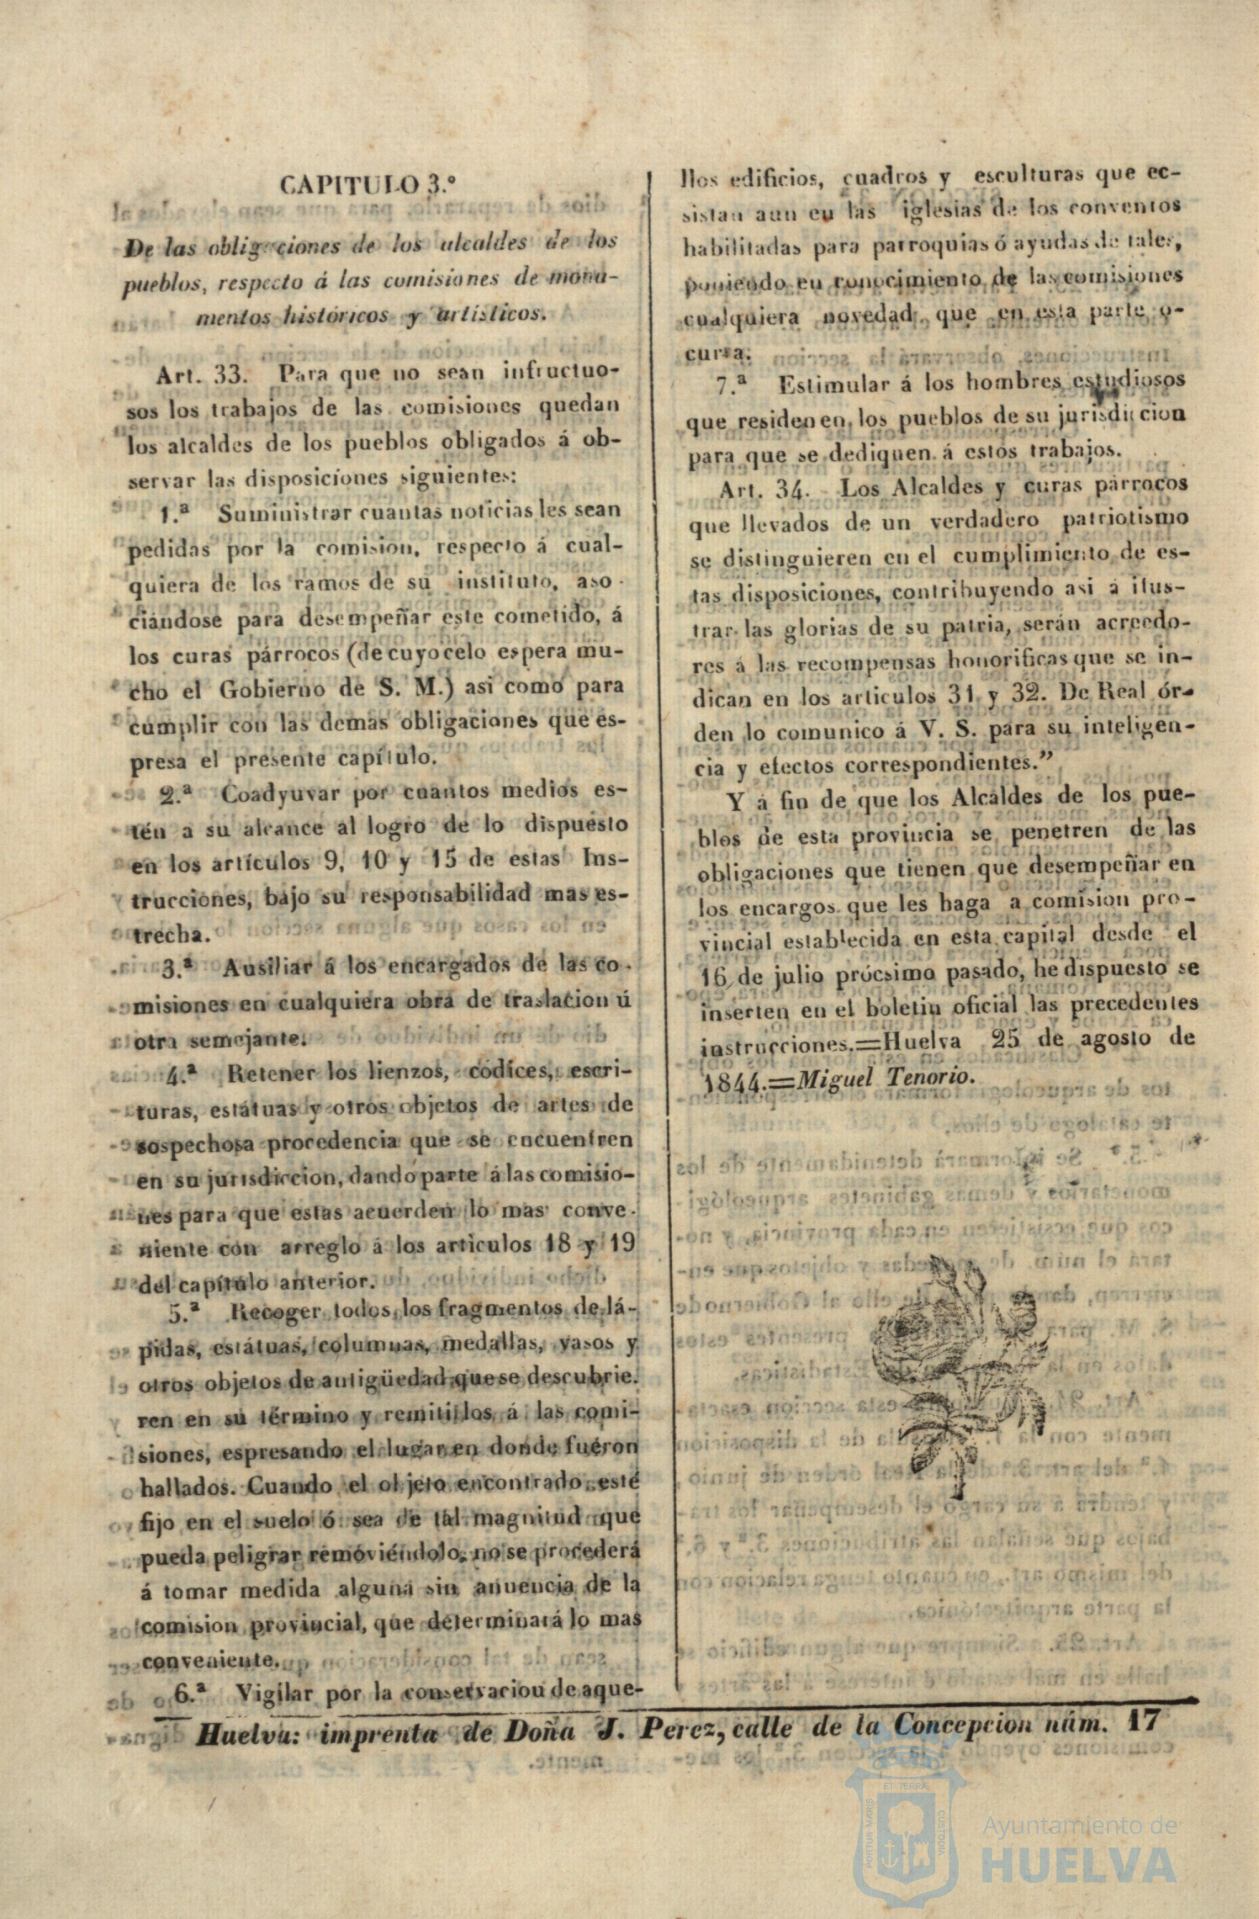 CAPITULO 3.º
De las obligaciones de los alcaldes de los
pueblos, respecto á las comisiones de monu-
mentos históricos y artísticos.
Art. 33. Para que no sean infructuo-
sos los trabajos de las comisiones quedan
los alcaldes de los pueblos obligados á ob-
servar las disposiciones siguientes:
1.ª Suministrar cuantas noticias les sean
pedidas por la comision, respecto á cual-
quiera de los ramos de su instituto, aso-
ciándose para desempeñar este cometido, á
los curas párrocos (de cuyo celo espera mu-
cho el Gobierno de S. M.) asi como para
cumplir con las demas obligaciones que es-
presa el presente capítulo.
2.ª Coadyuvar por cuantos medios es-
tén a su alcance al logro de lo dispuesto
en los artículos 9, 10 y 15 de estas Ins-
trucciones, bajo su responsabilidad mas es-
trecha.
3.ª Ausiliar á los encargados de las co-
misiones en cualquiera obra de traslacion ú
otra semejante.
4.ª Retener los lienzos, códices, escri-
turas, estátuas y otros objetos de artes de
sospechosa procedencia que se encuentren
en su jurisdiccion, dando parte á las comisio-
nes para que estas acuerden lo mas conve-
niente con arreglo á los articulos 18 y 19
del capítulo anterior.
5.ª Recoger todos los fragmentos de lá-
pidas, estátuas, columnas, medallas, vasos y
otros objetos de antigüedad que se descubrie-
ren en su término y remitirlos á las comi-
siones, espresando el lugar en donde fueron
hallados. Cuando el objeto encontrado esté
fijo en el suelo ó sea de tal magnitud que
pueda peligrar removiéndolo, no se procederá
á tomar medida alguna sin anuencia de la
comision provincial, que determinará lo mas
conveniente.
6.ª Vigilar por la conservacion de aque-
llos edificios, cuadros y esculturas que ec-
sistan aun en las iglesias de los conventos
habilitadas para parroquias ó ayudas de tales,
poniendo en conocimiento de las comisiones
cualquiera novedad que en esta parte o-
curra.
7.ª Estimular á los hombres estudiosos
que residen en los pueblos de su jurisdiccion
para que se dediquen á estos trabajos.
Art. 34. Los Alcaldes y curas párrocos
que llevados de un verdadero patriotismo
se distinguieren en el cumplimiento de es-
tas disposiciones, contribuyendo asi á ilus-
trar las glorias de su patria, serán acreedo-
res á las recompensas honorificas que se in-
dican en los articulos 31 y 32. De Real ór-
den lo comunico á V. S. para su inteligen-
cia y efectos correspondientes.”
Y á fin de que los Alcaldes de los pue-
blos de esta provincia se penetren de las
obligaciones que tienen que desempeñar en
los encargos que les haga a comision pro-
vincial establecida en esta capital desde el
16 de julio prócsimo pasado, he dispuesto se
inserten en el boletin oficial las precedentes
instrucciones.=Huelva 25 de agosto de
1844.=Miguel Tenorio.
Huelva: imprenta de Doña J. Perez, calle de la Concepcion núm. 17
ET TERRÆ
PORTUS MARIS
CUSTODIA
Ayuntamiento de
HUELVA